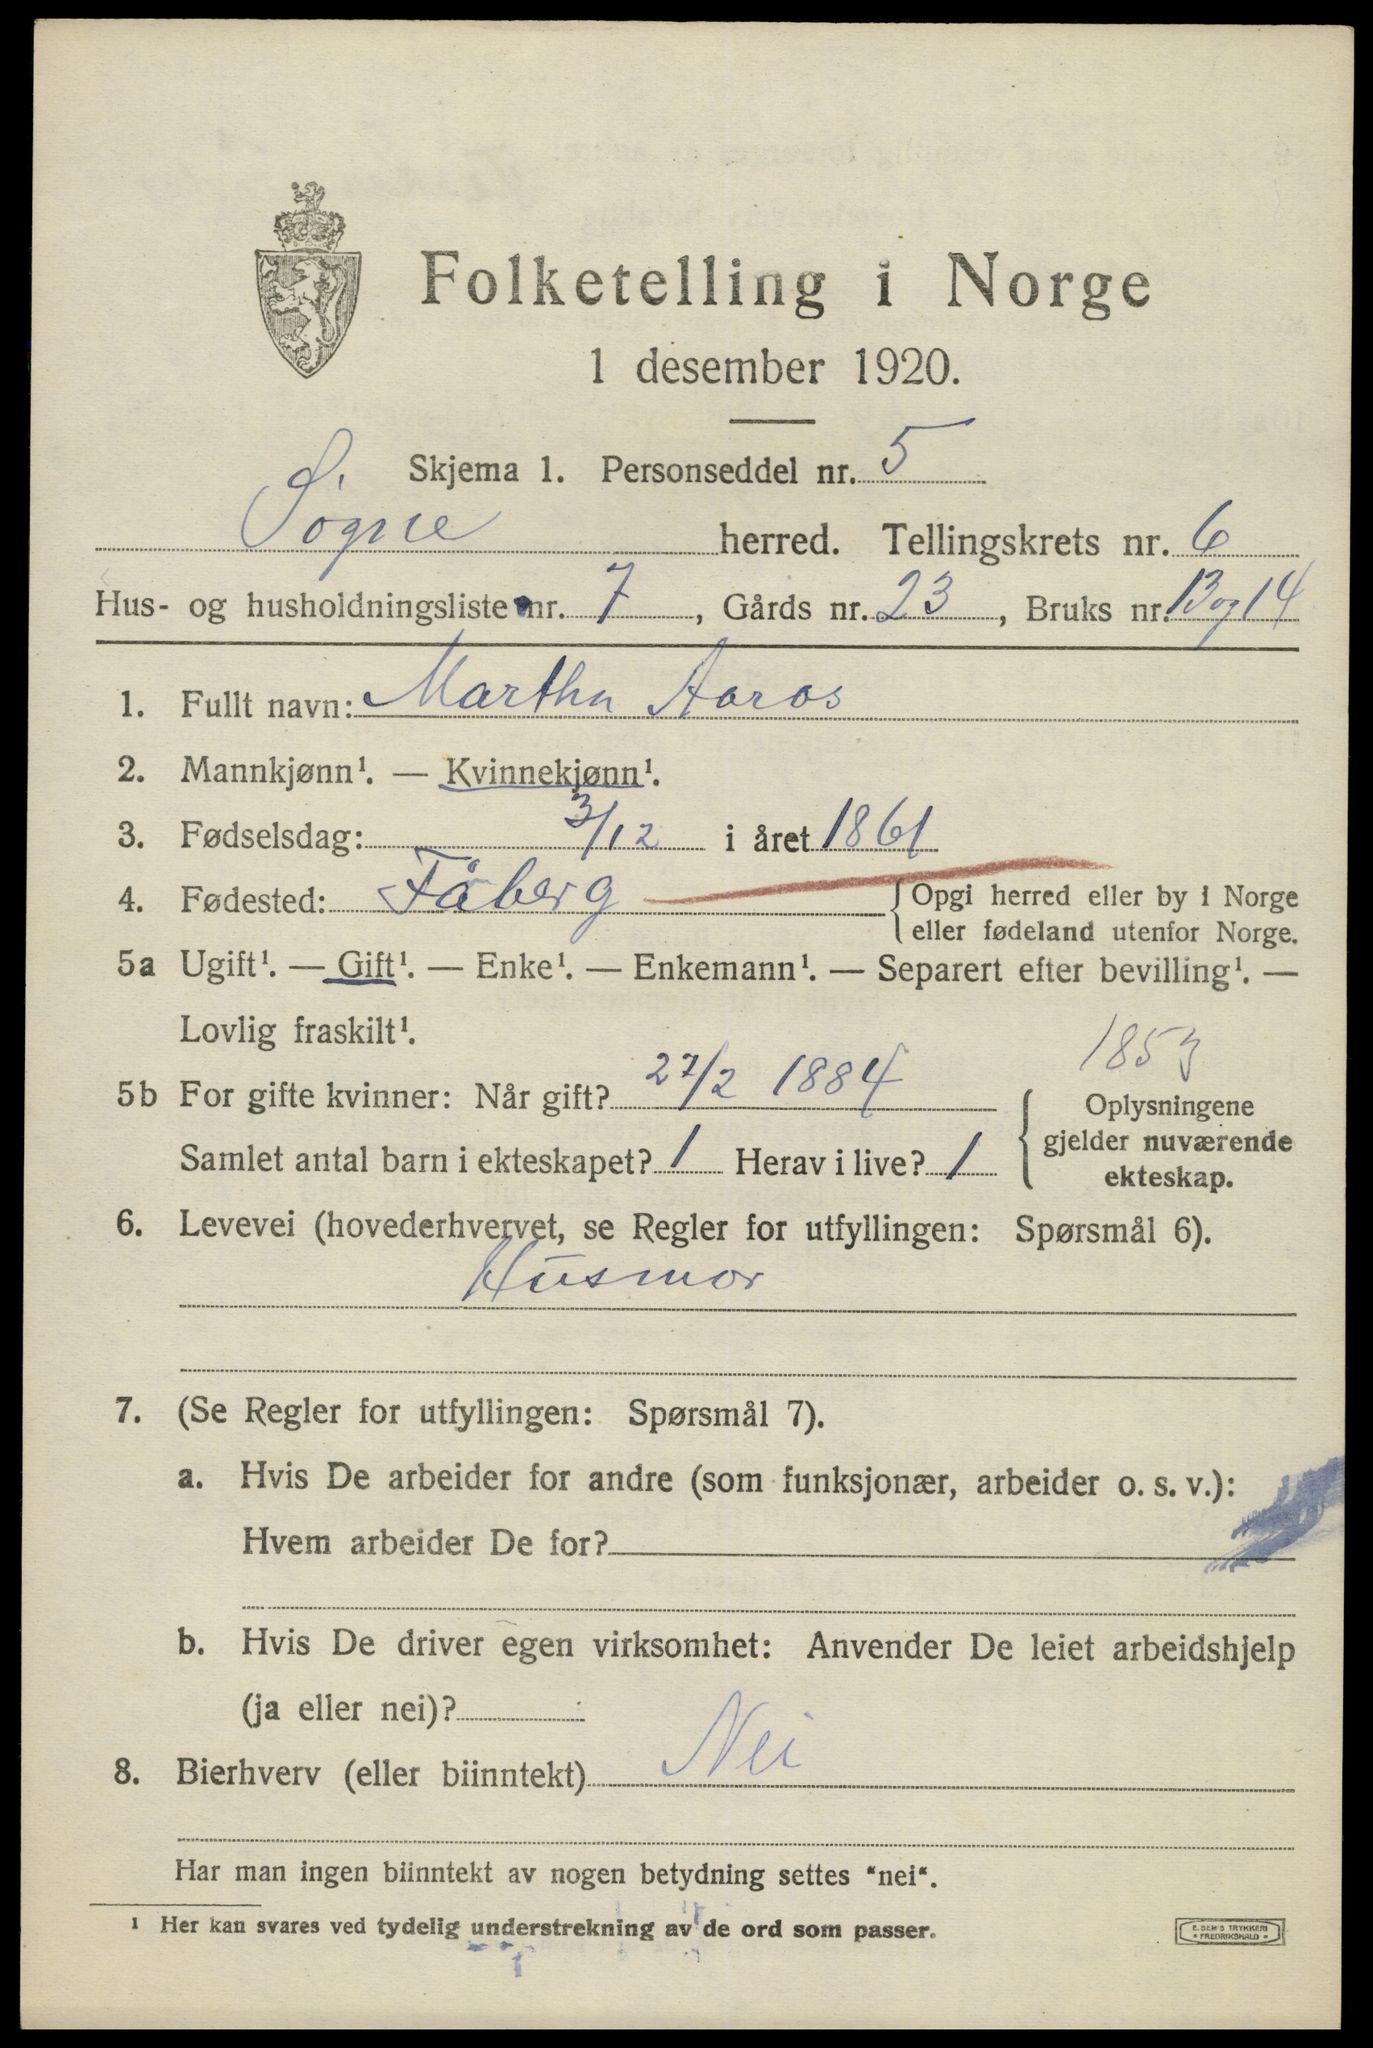 Folketelling i Norge
1 desember 1920.
Skjema 1. Personseddel nr. 5
Søgne herred. Tellingskrets nr. 6
Hus- og husholdningsliste nr. 7, Gårds nr. 23, Bruks nr. 13 og 14
1. Fullt navn: Martha Aaros
2. Mannkjønn¹. — Kvinnekjønn¹.
3. Fødselsdag: 3/12 i året 1861
4. Fødested: Fåberg { Opgi herred eller by i Norge
eller fødeland utenfor Norge.
5a Ugift¹. — Gift¹. — Enke¹. — Enkemann¹. — Separert efter bevilling¹. —
Lovlig fraskilt¹.
1853
5b For gifte kvinner: Når gift? 27/2 1884
Samlet antal barn i ekteskapet? 1 Herav i live? 1
{ Oplysningene
gjelder nuværende
ekteskap.
6. Levevei (hovederhvervet, se Regler for utfyllingen: Spørsmål 6).
Husmor
7. (Se Regler for utfyllingen: Spørsmål 7).
a. Hvis De arbeider for andre (som funksjonær, arbeider o. s. v.):
Hvem arbeider De for?
b. Hvis De driver egen virksomhet: Anvender De leiet arbeidshjelp
(ja eller nei)?
8. Bierhverv (eller biinntekt) Nei
Har man ingen biinntekt av nogen betydning settes "nei".
¹ Her kan svares ved tydelig understrekning av de ord som passer.
E. SEM'S TRYKKERI
* FREDRIKSHALD *